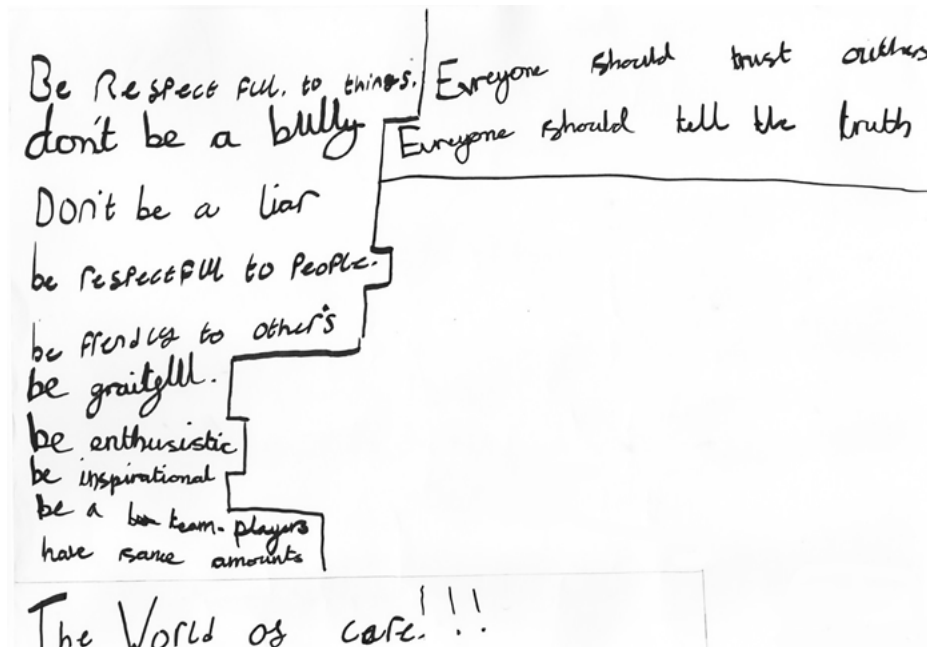 Be Respectful. to things.
don't be a bully
Don't be a liar
be respectful to people.
be frendly to other's
be graitful.
be enthusistic
be inspirational
be a team-players
have same amounts
Evreyone should trust outhers
Evreyone should tell the truth
The World of care!!!